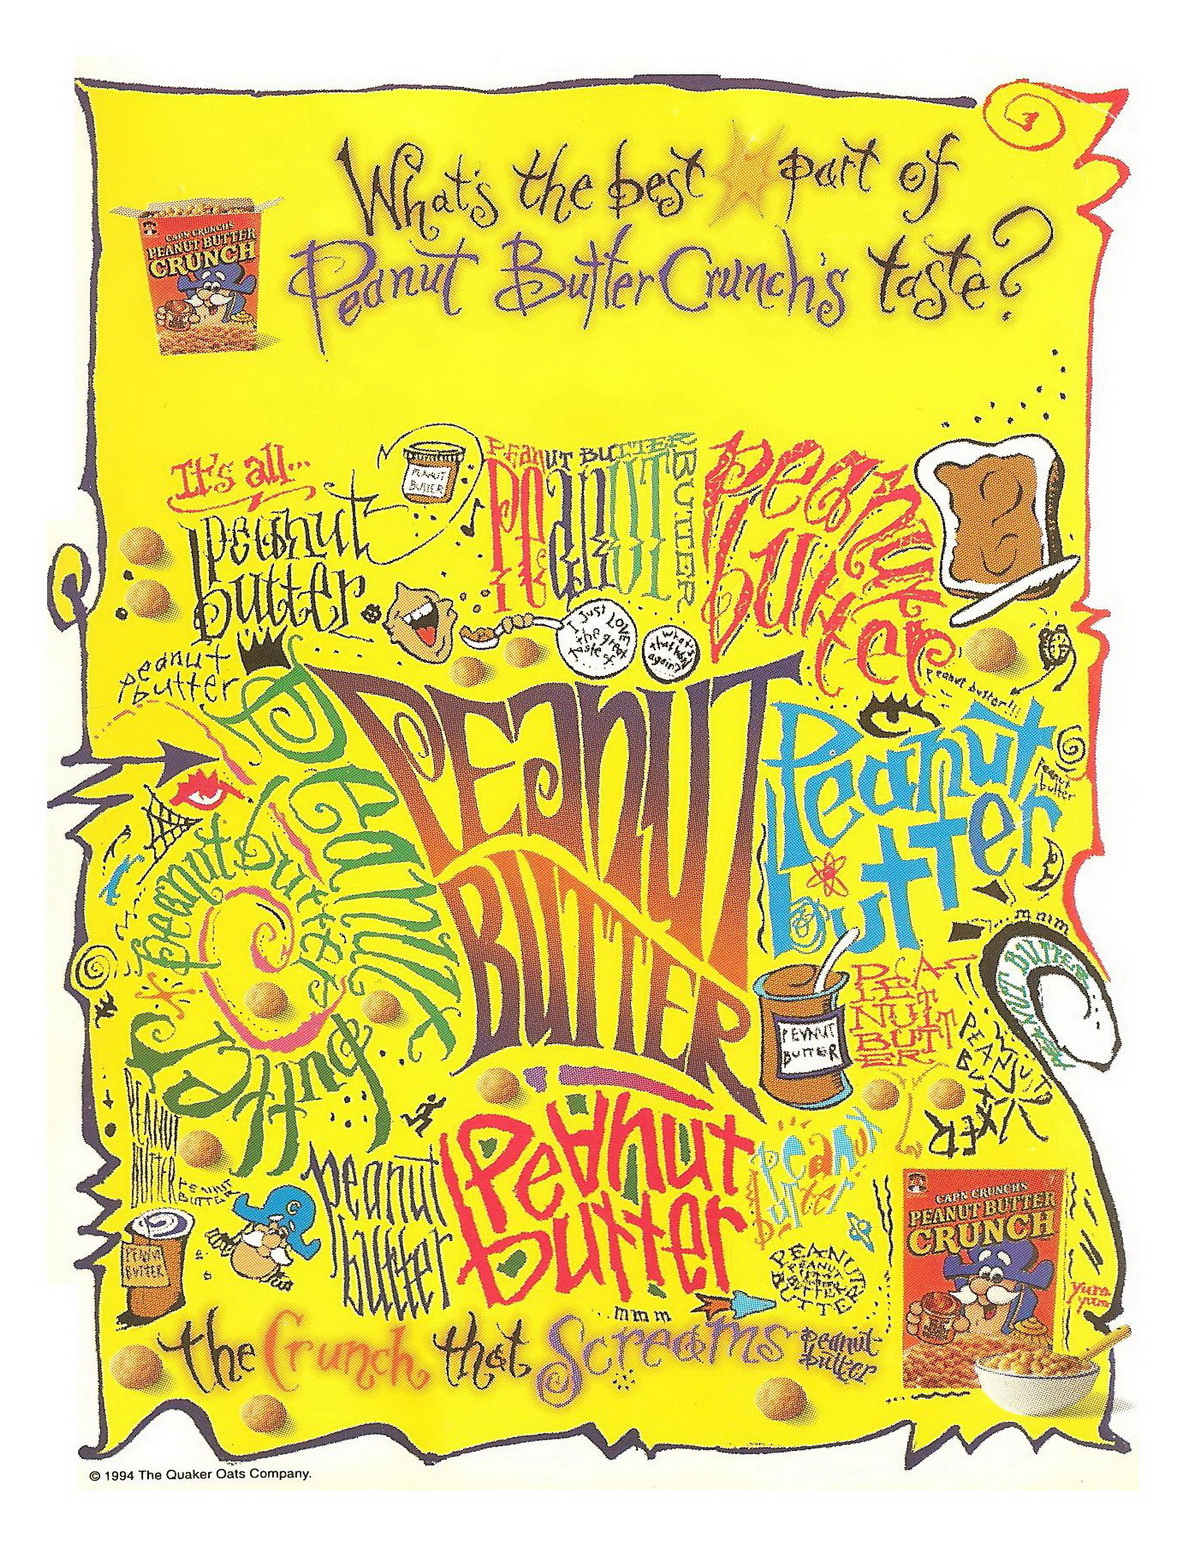 What's the best part of
Peanut Butter Crunch's taste?
CAP'N CRUNCH'S
PEANUT BUTTER
CRUNCH
It's all...
peanut
butter
PEANUT
BUTTER
PEANUT BUTTER
PEANUT
BUTTER
peanut
butter
I just LOVE
the great
taste of
what's
that word
again?
peanut
butter
peanut butter!!!
Peanut
butter
PEANUT
BUTTER
Peanut
butter
peanut
butter
peanut butter
mmm
PEANUT BUTTER
PEANUT
BUTTER
PEANUT
BUTTER
PEANUT
BUTTER
PEANUT
BUTTER
PEANUT
BUTTER
PEANUT
BUTTER
C
peanut
butter
Peanut
butter
Peanut
butter
PEANUT
BUTTER
mmm
CAP'N CRUNCH'S
PEANUT BUTTER
CRUNCH
yum
yum
the Crunch that Screams peanut
butter
© 1994 The Quaker Oats Company.